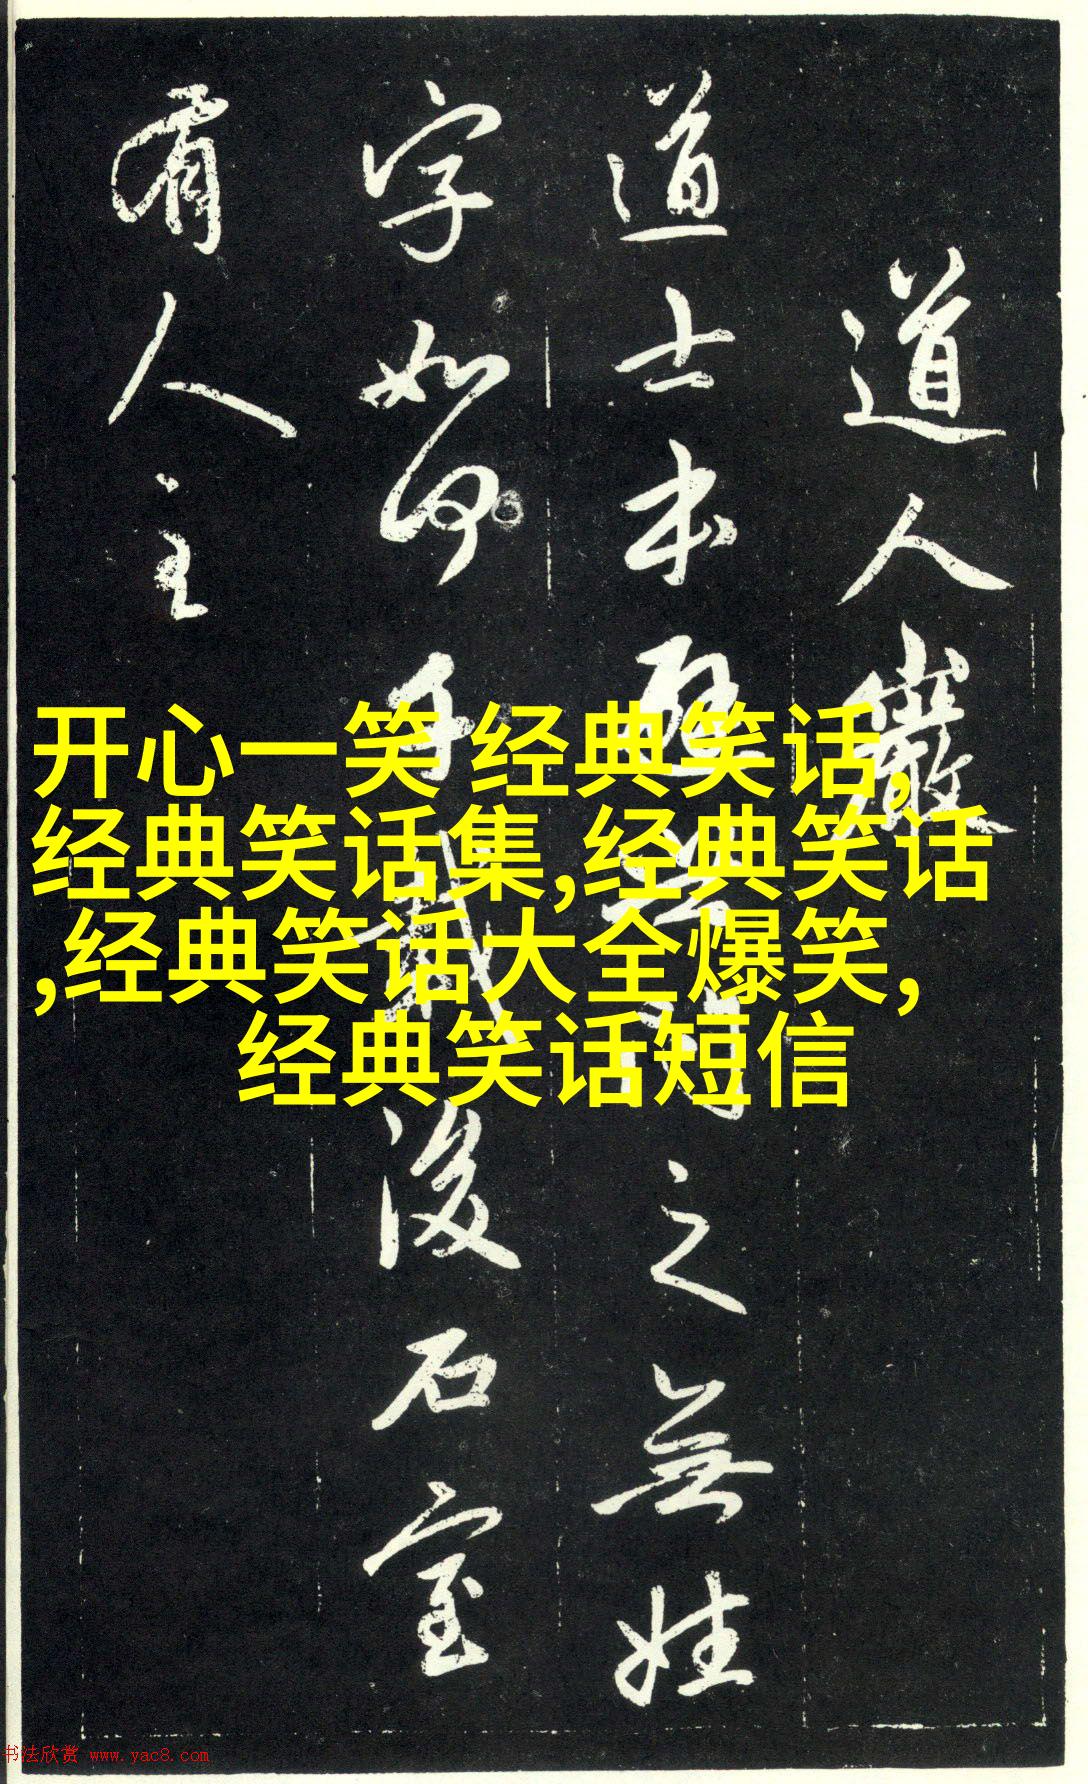 道人巖
道士本之無姓
字如何手後石室
有人主
开心一笑 经典笑话,
经典笑话集,经典笑话
,经典笑话大全爆笑,
经典笑话短信
书法欣赏 www.yac8.com